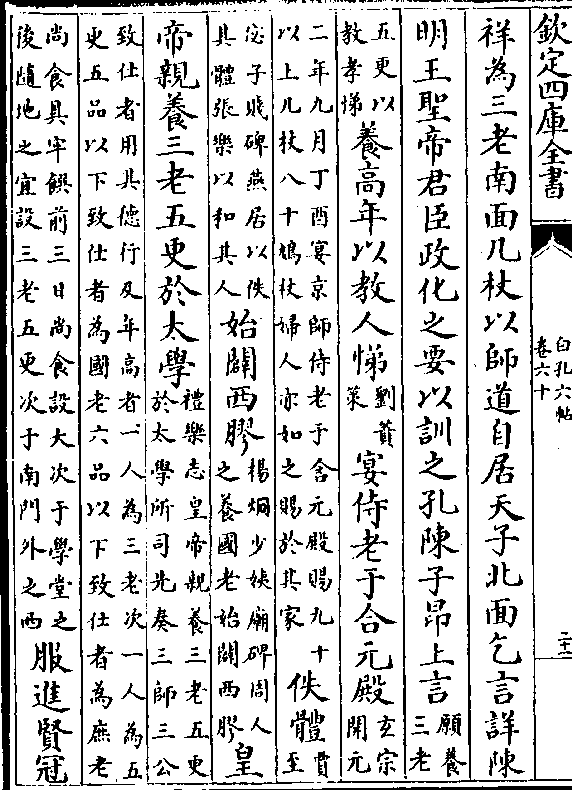 欽定四庫全書
白孔六帖
卷六十
祥為三老南面几杖以師道自居天子北面乞言詳陳
明王聖帝君臣政化之要以訓之孔陳子昂上言
願養
三老
五更以
教孝悌
養高年以教人悌
劉蕡
策
宴侍老于合元殿
玄宗
開元
二年九月丁酉宴京師侍老于含元殿賜九十
以上几杖八十鳩杖婦人亦如之賜於其家
佚體
賈
至
宓子賤碑燕居以佚
其體張樂以和其人
始闢西膠
楊炯少姨廟碑周人
之養國老始闢西膠
皇
帝親養三老五更於太學
禮樂志皇帝親養三老五更
於太學所司先奏三師三公
致仕者用其德行及年高者一人為三老次一人為五
更五品以下致仕者為國老六品以下致仕者為庶老
尚食具牢饌前三日尚食設大次于學堂之
後隨地之宜設三老五更次于南門外之西
服進賢冠